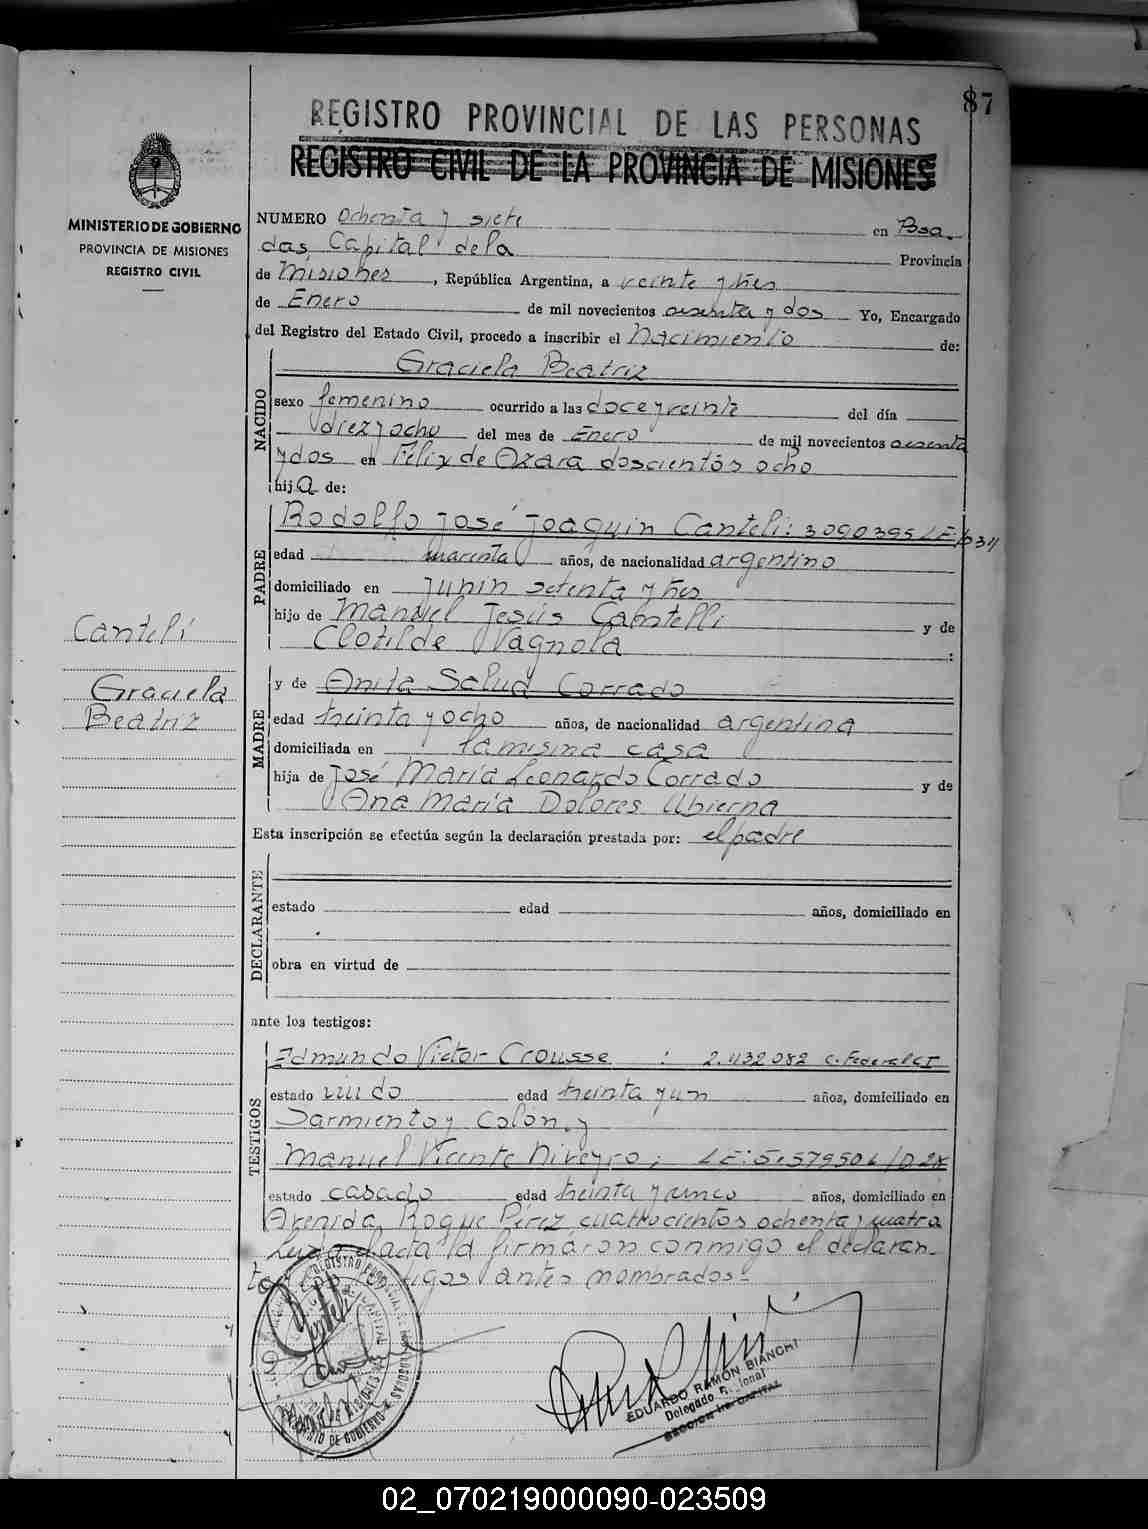 87
REGISTRO PROVINCIAL DE LAS PERSONAS
REGISTRO CIVIL DE LA PROVINCIA DE MISIONES
MINISTERIO DE GOBIERNO
PROVINCIA DE MISIONES
REGISTRO CIVIL
NUMERO Ochenta y siete en Posa-
das, Capital de la Provincia
de Misiones, República Argentina, a veinte y tres
de Enero de mil novecientos sesenta y dos Yo, Encargado
del Registro del Estado Civil, procedo a inscribir el Nacimiento de:
NACIDO
Graciela Beatriz
sexo femenino ocurrido a las doce y veinte del día
diez y ocho del mes de Enero de mil novecientos sesenta
y dos en Félix de Azara doscientos ocho
hija de:
PADRE
Rodolfo José Joaquin Canteli: 3090395 LE
edad cuarenta años, de nacionalidad argentino
domiciliado en Junin setenta y tres
hijo de Manuel Jesús Cantelli y de
Clotilde Vagnola :
Canteli
Graciela
Beatriz
MADRE
y de Anita Salud Corrado
edad treinta y ocho años, de nacionalidad argentina
domiciliada en la misma casa
hija de José María Leonardo Corrado y de
Ana María Dolores Ubierna
Esta inscripción se efectúa según la declaración prestada por: el padre
DECLARANTE
estado edad años, domiciliado en
obra en virtud de
ante los testigos:
TESTIGOS
Edmundo Victor Crousse : 2.432.082 C. Federal CI
estado viudo edad treinta y un años, domiciliado en
Sarmiento y Colón y
Manuel Vicente Niveyro; LE: 5.579506
estado casado edad treinta y cinco años, domiciliado en
Avenida Roque Pérez cuatrocientos ochenta y cuatro
Leida el acta la firmaron conmigo el declaran-
te antes nombrados=
EDUARDO RAMÓN BIANCHI
Delegado
02_070219000090-023509